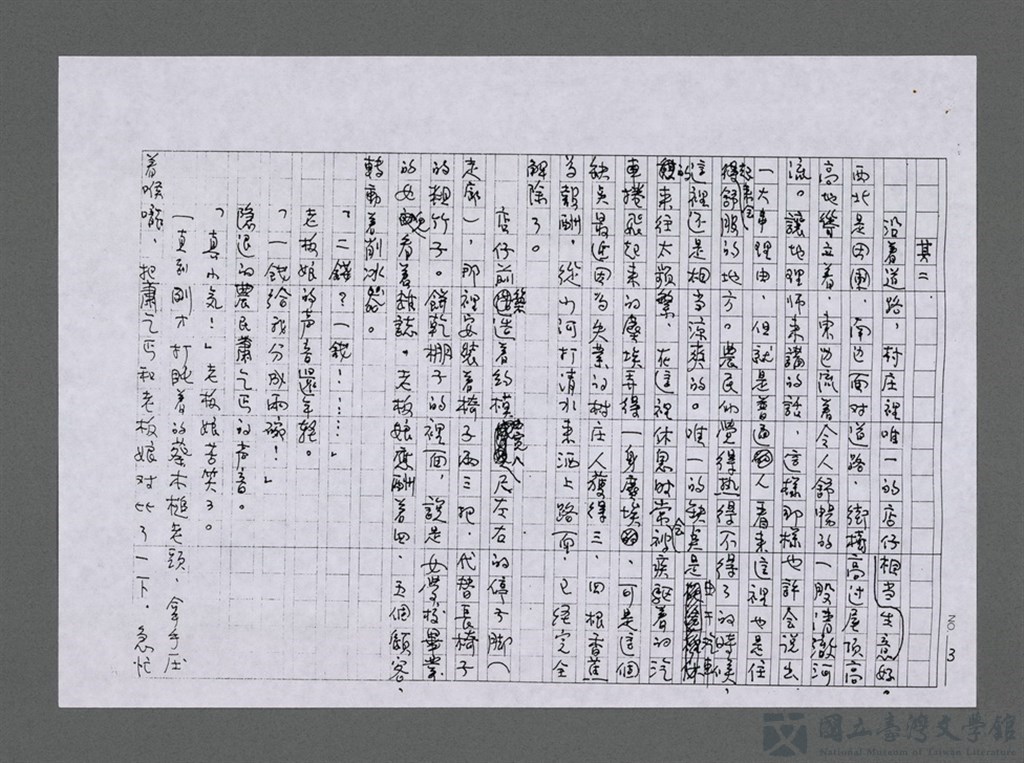 20 3
其二
沿着道路，村庄裡唯一的店仔相当生意好。
西北是田圃，南边面对道路，街樓高过屋頂高
高地聳立着，東边流着令人舒暢的一股清澈河
流。讓地理師来講的話，這樣那樣也許会說出
一大串理由，但就是普通人看来這裡也是住
起来会得舒服的地方。農民们覺得热得不得了的時候，
這裡还是相当涼爽的。唯一的缺点是由于汽車
的来往太頻繁，在這裡休息時常会被疾駛着的汽
車捲飛起来的塵埃弄得一身塵埃，可是這個
缺点最近因为失業的村庄人獲得三、四根香蕉
為報酬，從小河打清水来洒上路面，已経完全
解除了。
店仔前築造着約模八尺左右的停子脚（
走廊），那裡安裝着椅子兩三把，代替長椅子
的粗竹子。餅乾棚子的裡面，說是女学校畢業
的女兒看着雜誌。老板娘應酬着四、五個顧客，
轉動着削冰器。
「二錢？一錢！……」
老板娘的声音還年轻。
「一錢給我分成兩碗！」
隐退的農民蕭乞丐的声音。
「真小気！」老板娘苦笑了。
一直到剛才打盹着的蔡木槌老頭，拿手压
着喉嚨，把蕭乞丐和老板娘对比了一下，急忙
國立臺灣文學館
National Museum of Taiwan Literature